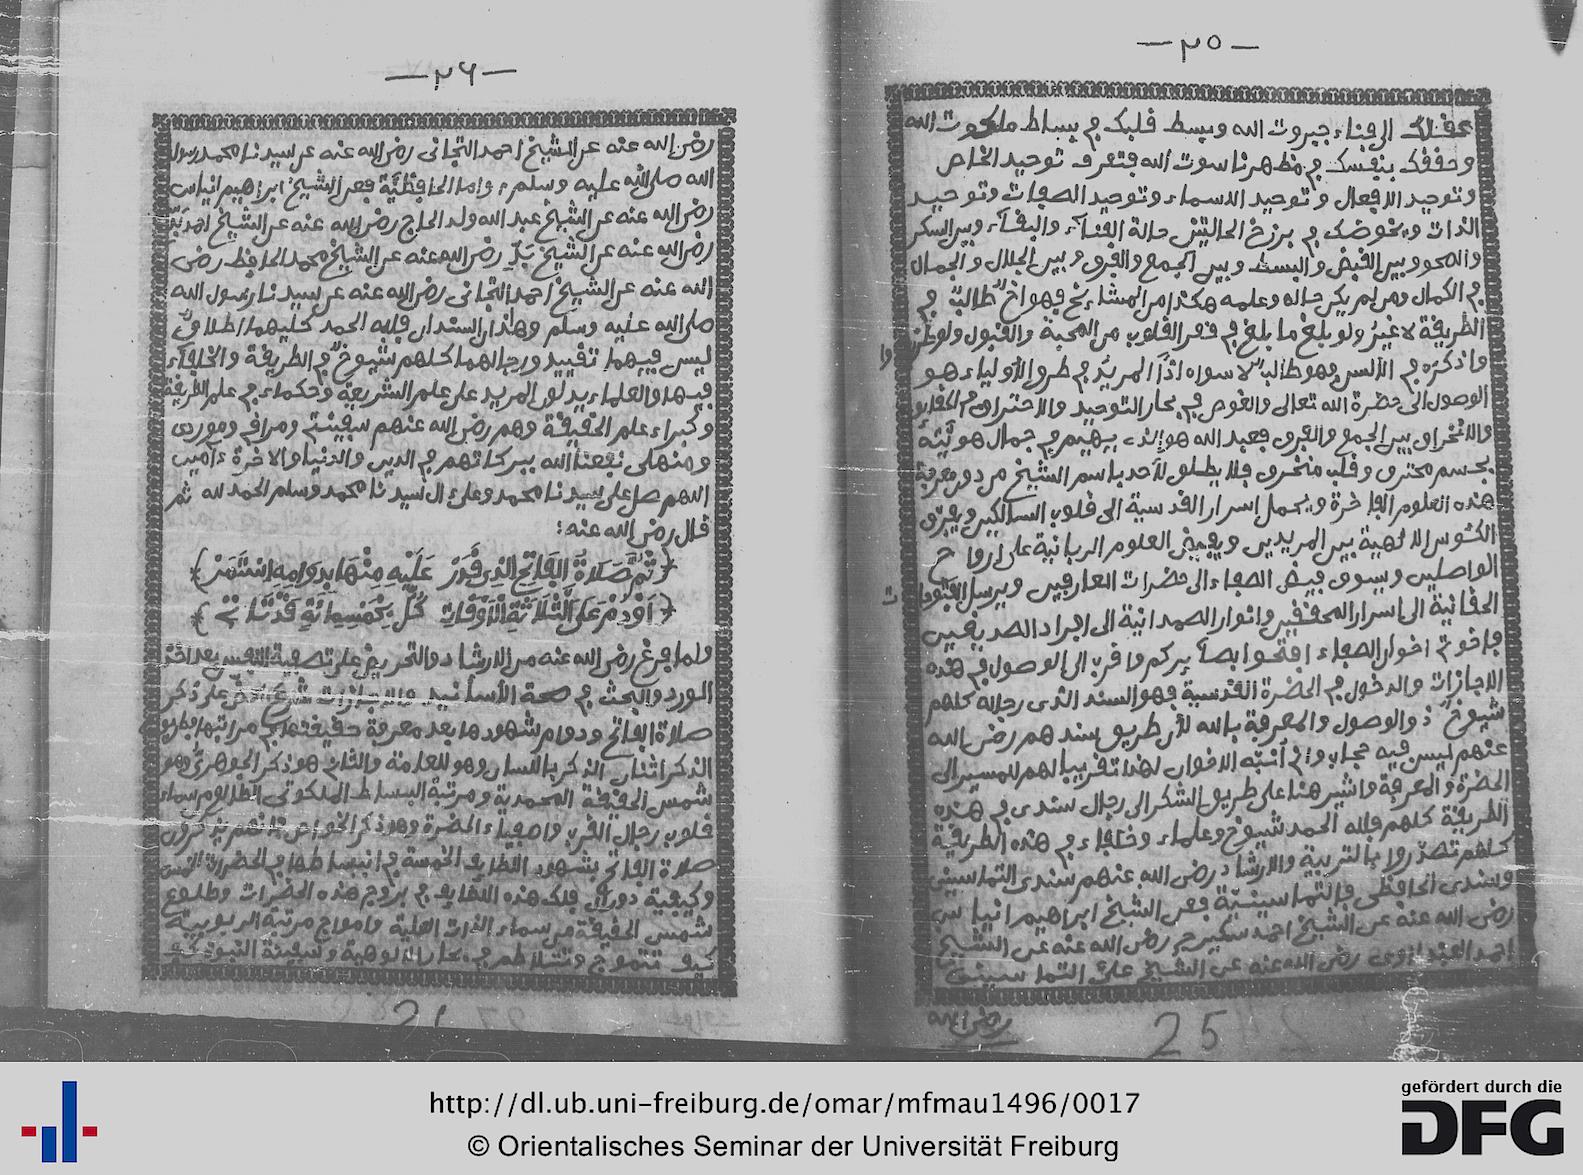 — ٢٥ —
عقلك الى فناء جبروت الله ويبسط قلبك في بساط ملكوت الله
وحققك بنفسك في مظهر ناسوت الله فتعرف توحيد الخاص
وتوحيد الافعال وتوحيد الاسماء وتوحيد الصفات وتوحيد
الذات ويخوضك في برزخ الحالتين حالة الفناء والبقاء وبين السكر
والصحو وبين القبض والبسط وبين الجمع والفرق وبين الجلال والجمال
في الكمال ومن لم يكن حاله وعلمه هكذا من المشائخ فهو اخ طالب في
الطريقة لا غير ولو بلغ ما بلغ في قعر القلوب من المحبة والقبول
واذكره في الألسن فهو طالب لا سواه اذا المريد في طرق الأولياء هو
الوصول الى حضرة الله تعالى والغوص في بحار التوحيد والاحتراق
والانخراق بين الجمع والفرق فعبد الله هو الذى يهيم في جمال هويته
بجسم محترق وقلب منخرق فلا يطلق لأحد باسم الشيخ من دون معرفة
هذه العلوم الفاخرة ويحمل اسرار القدسية الى قلوب السالكين ويفرق
الكئوس الالهية بين المريدين ويفيض العلوم الربانية على ارواح
الواصلين ويسوق فيض الصفاء الى حضرات العارفين ويرسل
الحقانية الى اسرار المحققين وانوار الصمدانية الى افراد الصديقين
فاخوتى اخوان الصفاء افتحوا بصائركم واقرب الى الوصول في هذه
الاجازات والدخول في الحضرة القدسية فهو السند الذى رجاله كلهم
شيوخ ذو الوصول والمعرفة بالله لأن طريق سندهم رضى الله
عنهم ليس فيه مجال وانى أنبه الاخوان لهذا تقريبا لهم للمسير الى
الحضرة والمعرفة واشير هنا على طريق الشكر الى رجال سندى في هذه
الطريقة كلهم ولله الحمد شيوخ وعلماء وخلفاء في هذه الطريقة
كلهم تصدروا بالتربية والارشاد رضى الله عنهم سندى التماسينى
وسندى الحافظى فالتماسينية فعن الشيخ ابراهيم انياس
رضى الله عنه عن الشيخ احمد سكيرج رضى الله عنه عن الشيخ
احمد العبدلاوى رضى الله عنه عن الشيخ على التماسينى
رضى الله
25
— ٢٦ —
رضى الله عنه عن الشيخ احمد التجانى رضى الله عنه عن سيدنا محمد رسول
الله صلى الله عليه وسلم واما الحافظية فعن الشيخ ابراهيم انياس
رضى الله عنه عن الشيخ عبد الله ولد الحاج رضى الله عنه عن الشيخ احمد
رضى الله عنه عن الشيخ بدّ رضى الله عنه عن الشيخ محمد الحافظ رضى
الله عنه عن الشيخ احمد التجانى رضى الله عنه عن سيدنا رسول الله
صلى الله عليه وسلم وهذان السندان فلله الحمد كليهما اطلاق
ليس فيهما تقييد ورجالهما كلهم شيوخ في الطريقة والخلفاء
فيها والعلماء يدلون المريد على علم الشريعة وحكماء في علم الطريقة
وكبراء علم الحقيقة وهم رضى الله عنهم سفينتى ومراقى وموردى
ومنهلى نفعنا الله ببركاتهم في الدين والدنيا والاخرة ءامين
اللهم صل على سيدنا محمد وعلى ال سيدنا محمد وسلم الحمد لله ثم
قال رضى الله عنه :
﴿ ثُمَّ صَلَاةَ الْفَاتِحِ الذى قَدَرْ عَلَيْهِ مِنْهَا
﴿ اَوْ دُمْ عَلَى الثَّلَاثَةِ الْأَوْقَاتِ كُلٌّ بِخَمْسِمِائَةٍ
ولما فرغ رضى الله عنه من الارشاد والتحريض على تصفية النفس بعد اخذ
الورد والبحث في صحة الأسانيد والاجازات شرع على ذكر
صلاة الفاتح ودوام شهودها بعد معرفة حقيقتها في مراتبها
الذكر اثنان الذكر باللسان وهو للعامة والثانى هو ذكر الجوهرى وهو
شمس الحقيقة المحمدية ومرتبة البساط الملكوتى
قلوب رجال القرب واصفياء الحضرة وهو ذكر الخواص
صلاة الفاتح بشهود اللطايف الخمسة في انبساطها في الحضرات الخمس
وكيفية دوران فلك هذه اللطايف في بروج هذه الحضرات وطلوع
شمس الحقيقة من سماء الذات العلية وامواج مرتبة الربوبية
كيف تتموج وتتلاطم في بحار الالوهية وسفينة النبوة كيف
http://dl.ub.uni-freiburg.de/omar/mfmau1496/0017
© Orientalisches Seminar der Universität Freiburg
gefördert durch die
DFG